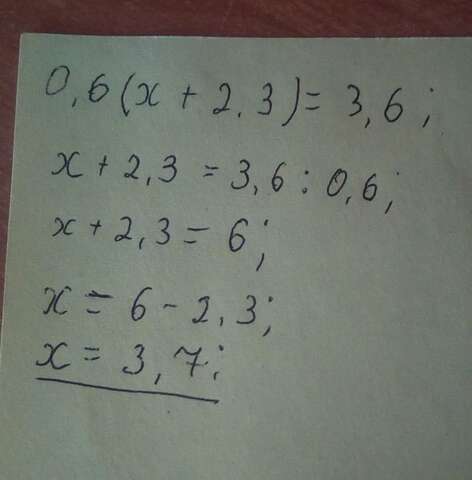 0,6(x + 2,3) = 3,6;
x + 2,3 = 3,6 : 0,6;
x + 2,3 = 6;
x = 6 - 2,3;
x = 3,7;